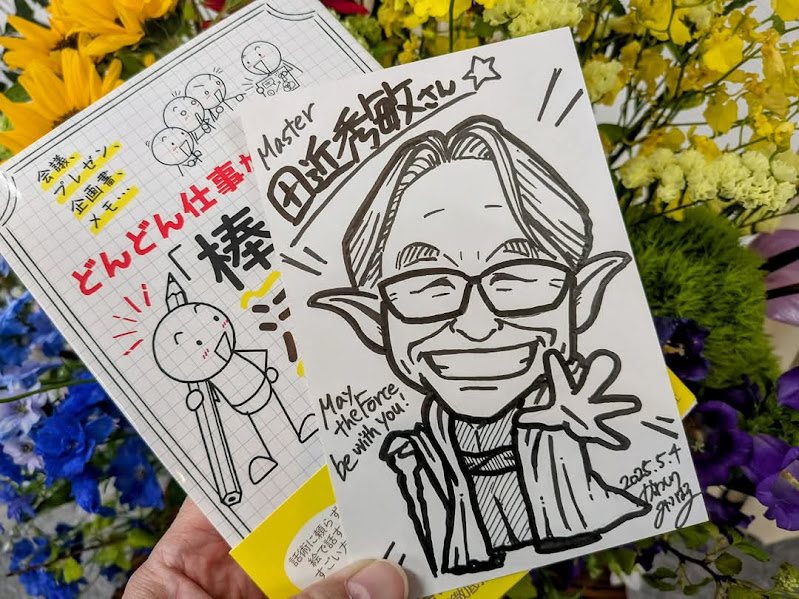 会議、
プレゼン、
企画書、
メモ…
どんどん仕事が
「棒
話術に頼らず
絵で話す
すごいプ
Master
田近秀敏さん
May
the Force
be with you!
2025.5.4